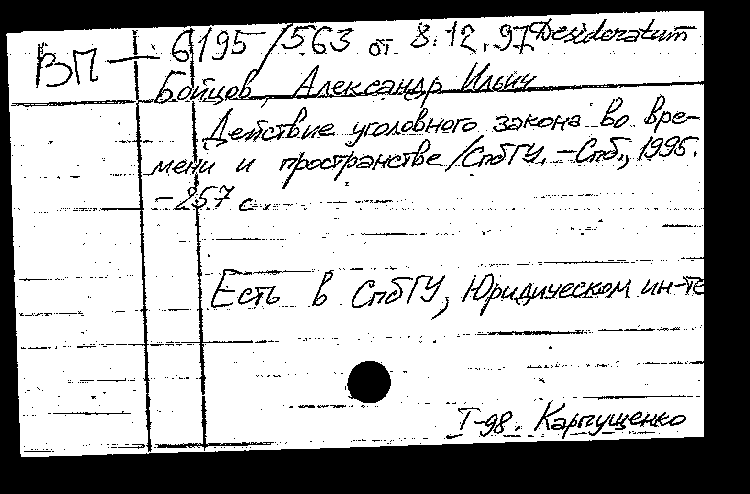 ВП — 6195/563 от 8.12.97 Desideratum
Бойцов, Александр Ильич
Действие уголовного закона во вре-
мени и пространстве / СпбГУ. – Спб., 1995.
– 257 с.
Есть в СпбГУ, Юридическом ин-те
I-98. Карпущенко